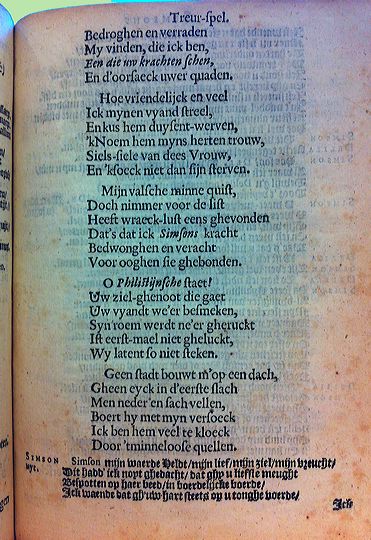 Treur-spel.
Bedroghen en verraden
My vinden, die ick ben,
Een die uw krachten schen,
En d'oorsaeck uwer quaden.
Hoe vriendelijck en veel
Ick mynen vyand streel,
En kus hem duysent-werven,
'kNoem hem myns herten trouw,
Siels-siele van dees Vrouw,
En 'ksoeck niet dan sijn sterven.
Mijn valsche minne quist,
Doch nimmer voor de list
Heeft wraeck-lust eens ghevonden
Dat's dat ick Simsons kracht
Bedwonghen en veracht
Voor ooghen sie ghebonden.
O Philistijnsche staet!
Uw ziel-ghenoot die gaet
Uw vyandt we'er besmeken,
Syn roem werdt ne'er gheruckt
Ist eerst-mael niet gheluckt,
Wy laten t so niet steken.
Geen stadt bouwt m'op een dach,
Gheen eyck in d'eerste slach
Men neder en sach vellen,
Boert hy met myn versoeck
Ick ben hem veel te kloeck
Door 'tminneloose quellen.
SIMSON Simson mijn waerde Heldt/mijn lief/mijn ziel/mijn vreucht/
uyt. Dit hadd' ick noyt ghedacht/ dat ghy u liefste meught
Bespotten op haer beed/in boerdelijcke woorde/
Ick waende dat gh'uw hart steets op u tonghe voerde/
Ick